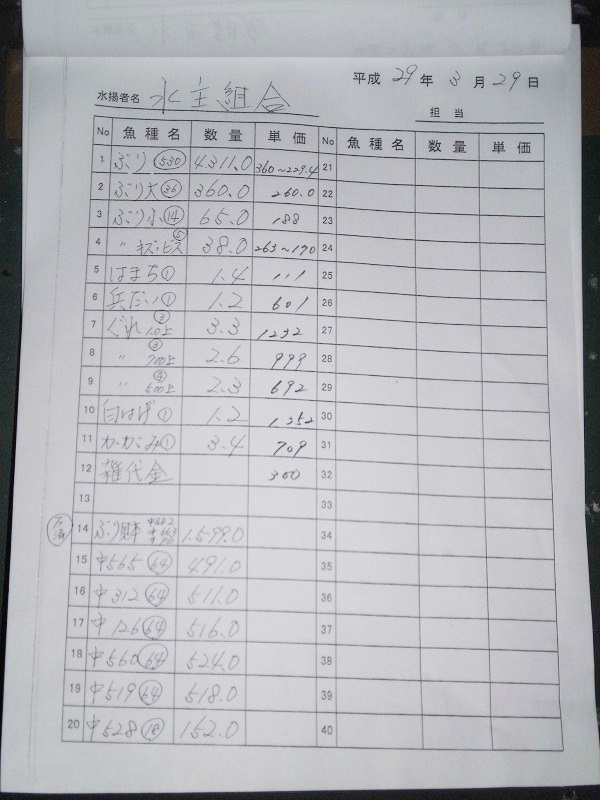 平成 29 年 3 月 29 日
水揚者名 水主組合
担当
No 魚種名 数量 単価 No 魚種名 数量 単価
1 ぶり 530 4311.0 360~229.4 21
2 ぶり大 36 360.0 260.0 22
3 ぶり小 14 65.0 188 23
4 〃 キズ・ビス 5 38.0 263~170 24
5 はまち 1 1.4 111 25
6 1 1.2 601 26
7 ぐれ 3 1.0上 3.3 1232 27
8 〃 3 700上 2.6 999 28
9 〃 4 500上 2.3 692 29
10 白はげ 1 1.2 1352 30
11 かがみ 1 3.4 709 31
12 雑代金 300 32
13 33
14 ぶり 1.599.0 34
15 中565 64 491.0 35
16 中312 64 511.0 36
17 中126 64 516.0 37
18 中560 64 524.0 38
19 中519 64 518.0 39
20 中528 18 152.0 40